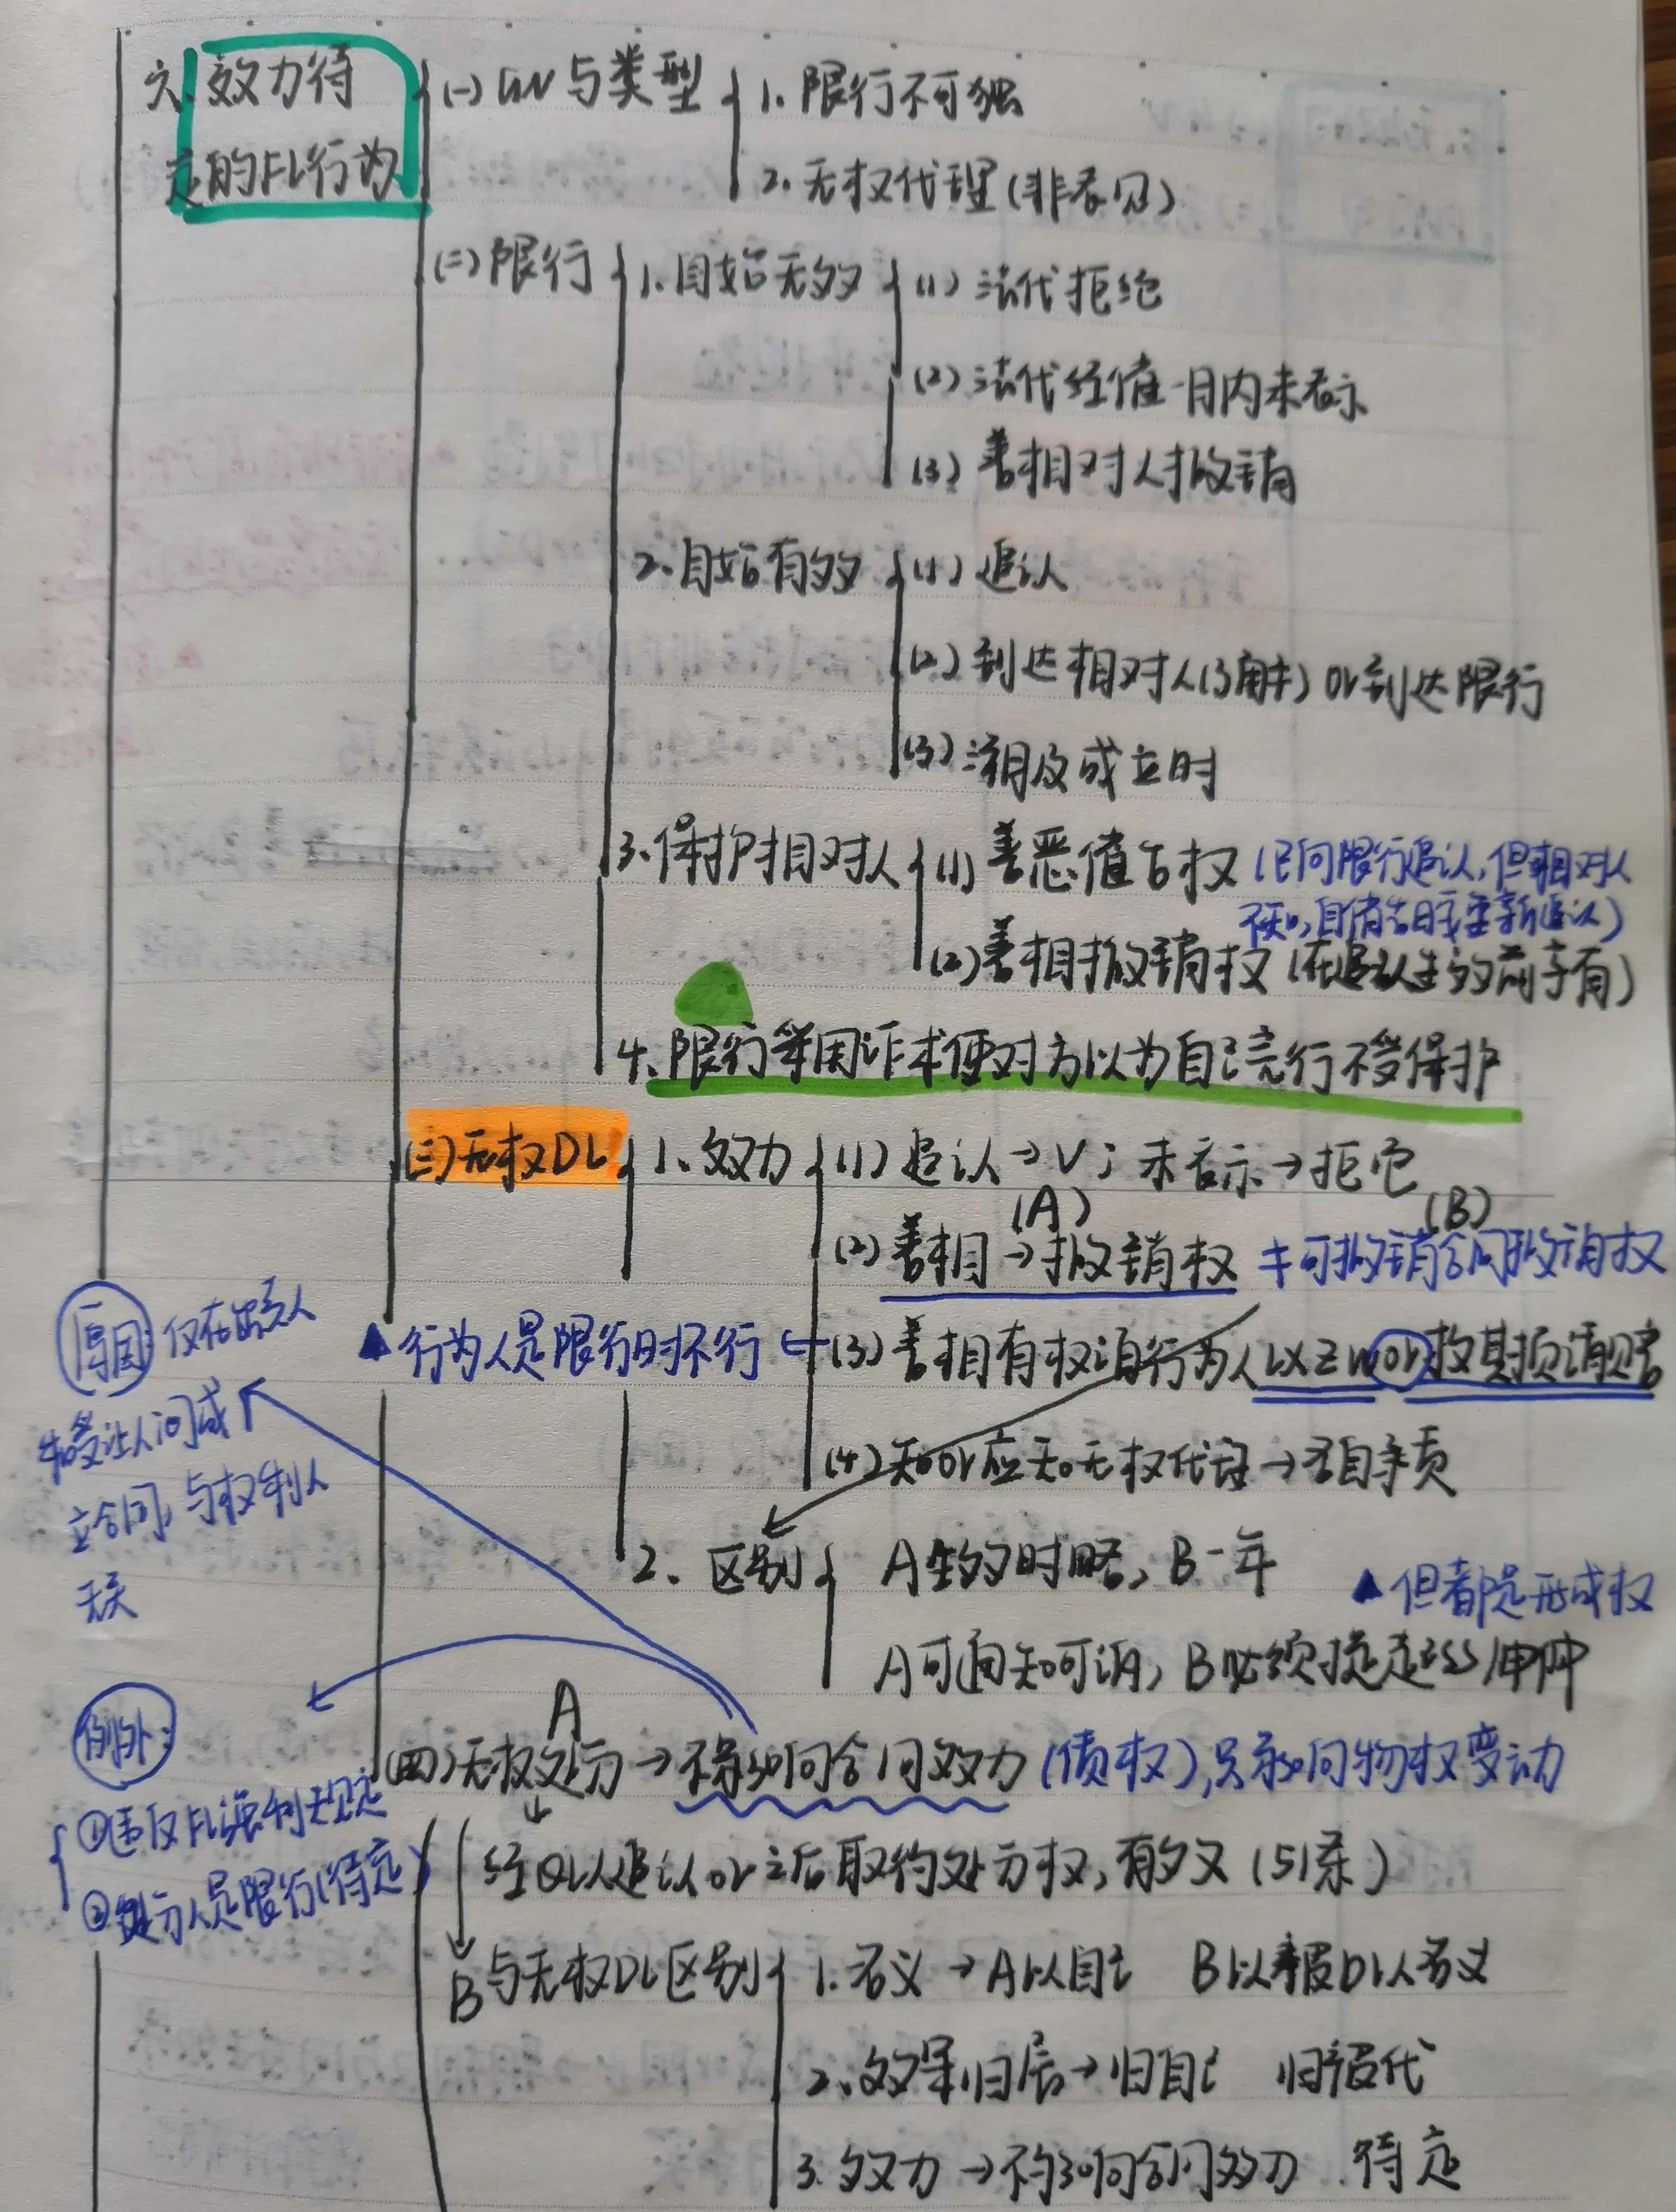 六、效力待
定的FL行为
(一)GN与类型
1. 限行不可独
2. 无权代理(非表见)
(二)限行
1. 自始无效
(1) 法代拒绝
(2) 法代经催一月内未表示
(3) 善相对人撤销
2. 自始有效
(1) 追认
(2) 到达相对人 or 到达限行
(3) 溯及成立时
3. 保护相对人
(1) 善恶催告权(已向限行追认,但相对人
不知,自催告日或重新追认)
(2) 善相撤销权(在追认生效前享有)
4. 限行等用诈术使对方以为自己完行不受保护
(三)无权DL
1. 效力
(1) 追认→V; 未表示→拒绝
(A)
(B)
(2) 善相→撤销权 ≠可撤销合同撤销权
(3) 善相有权请行为人LXZW or 按其损请赔
▲行为人是限行时不行
(4) 知or应知无权代理→各自承责
2. 区别
A生效时略, B一年
▲但都是形成权
A可通知可诉, B必须提起SS/仲
原因: 仅在出卖人
和受让人间成
立合同, 与权利人
无关
例外:
①违反FL强制规定
②处分人是限行(待定)
A
(四)无权处分→不影响合同效力(债权),只影响物权变动
经QL人追认or之后取得处分权,有效(51条)
B
与无权DL区别
1. 名义→A以自己 B以被DL人名义
2. 效果归属→归自己 归被代
3. 效力→不影响合同效力 待定